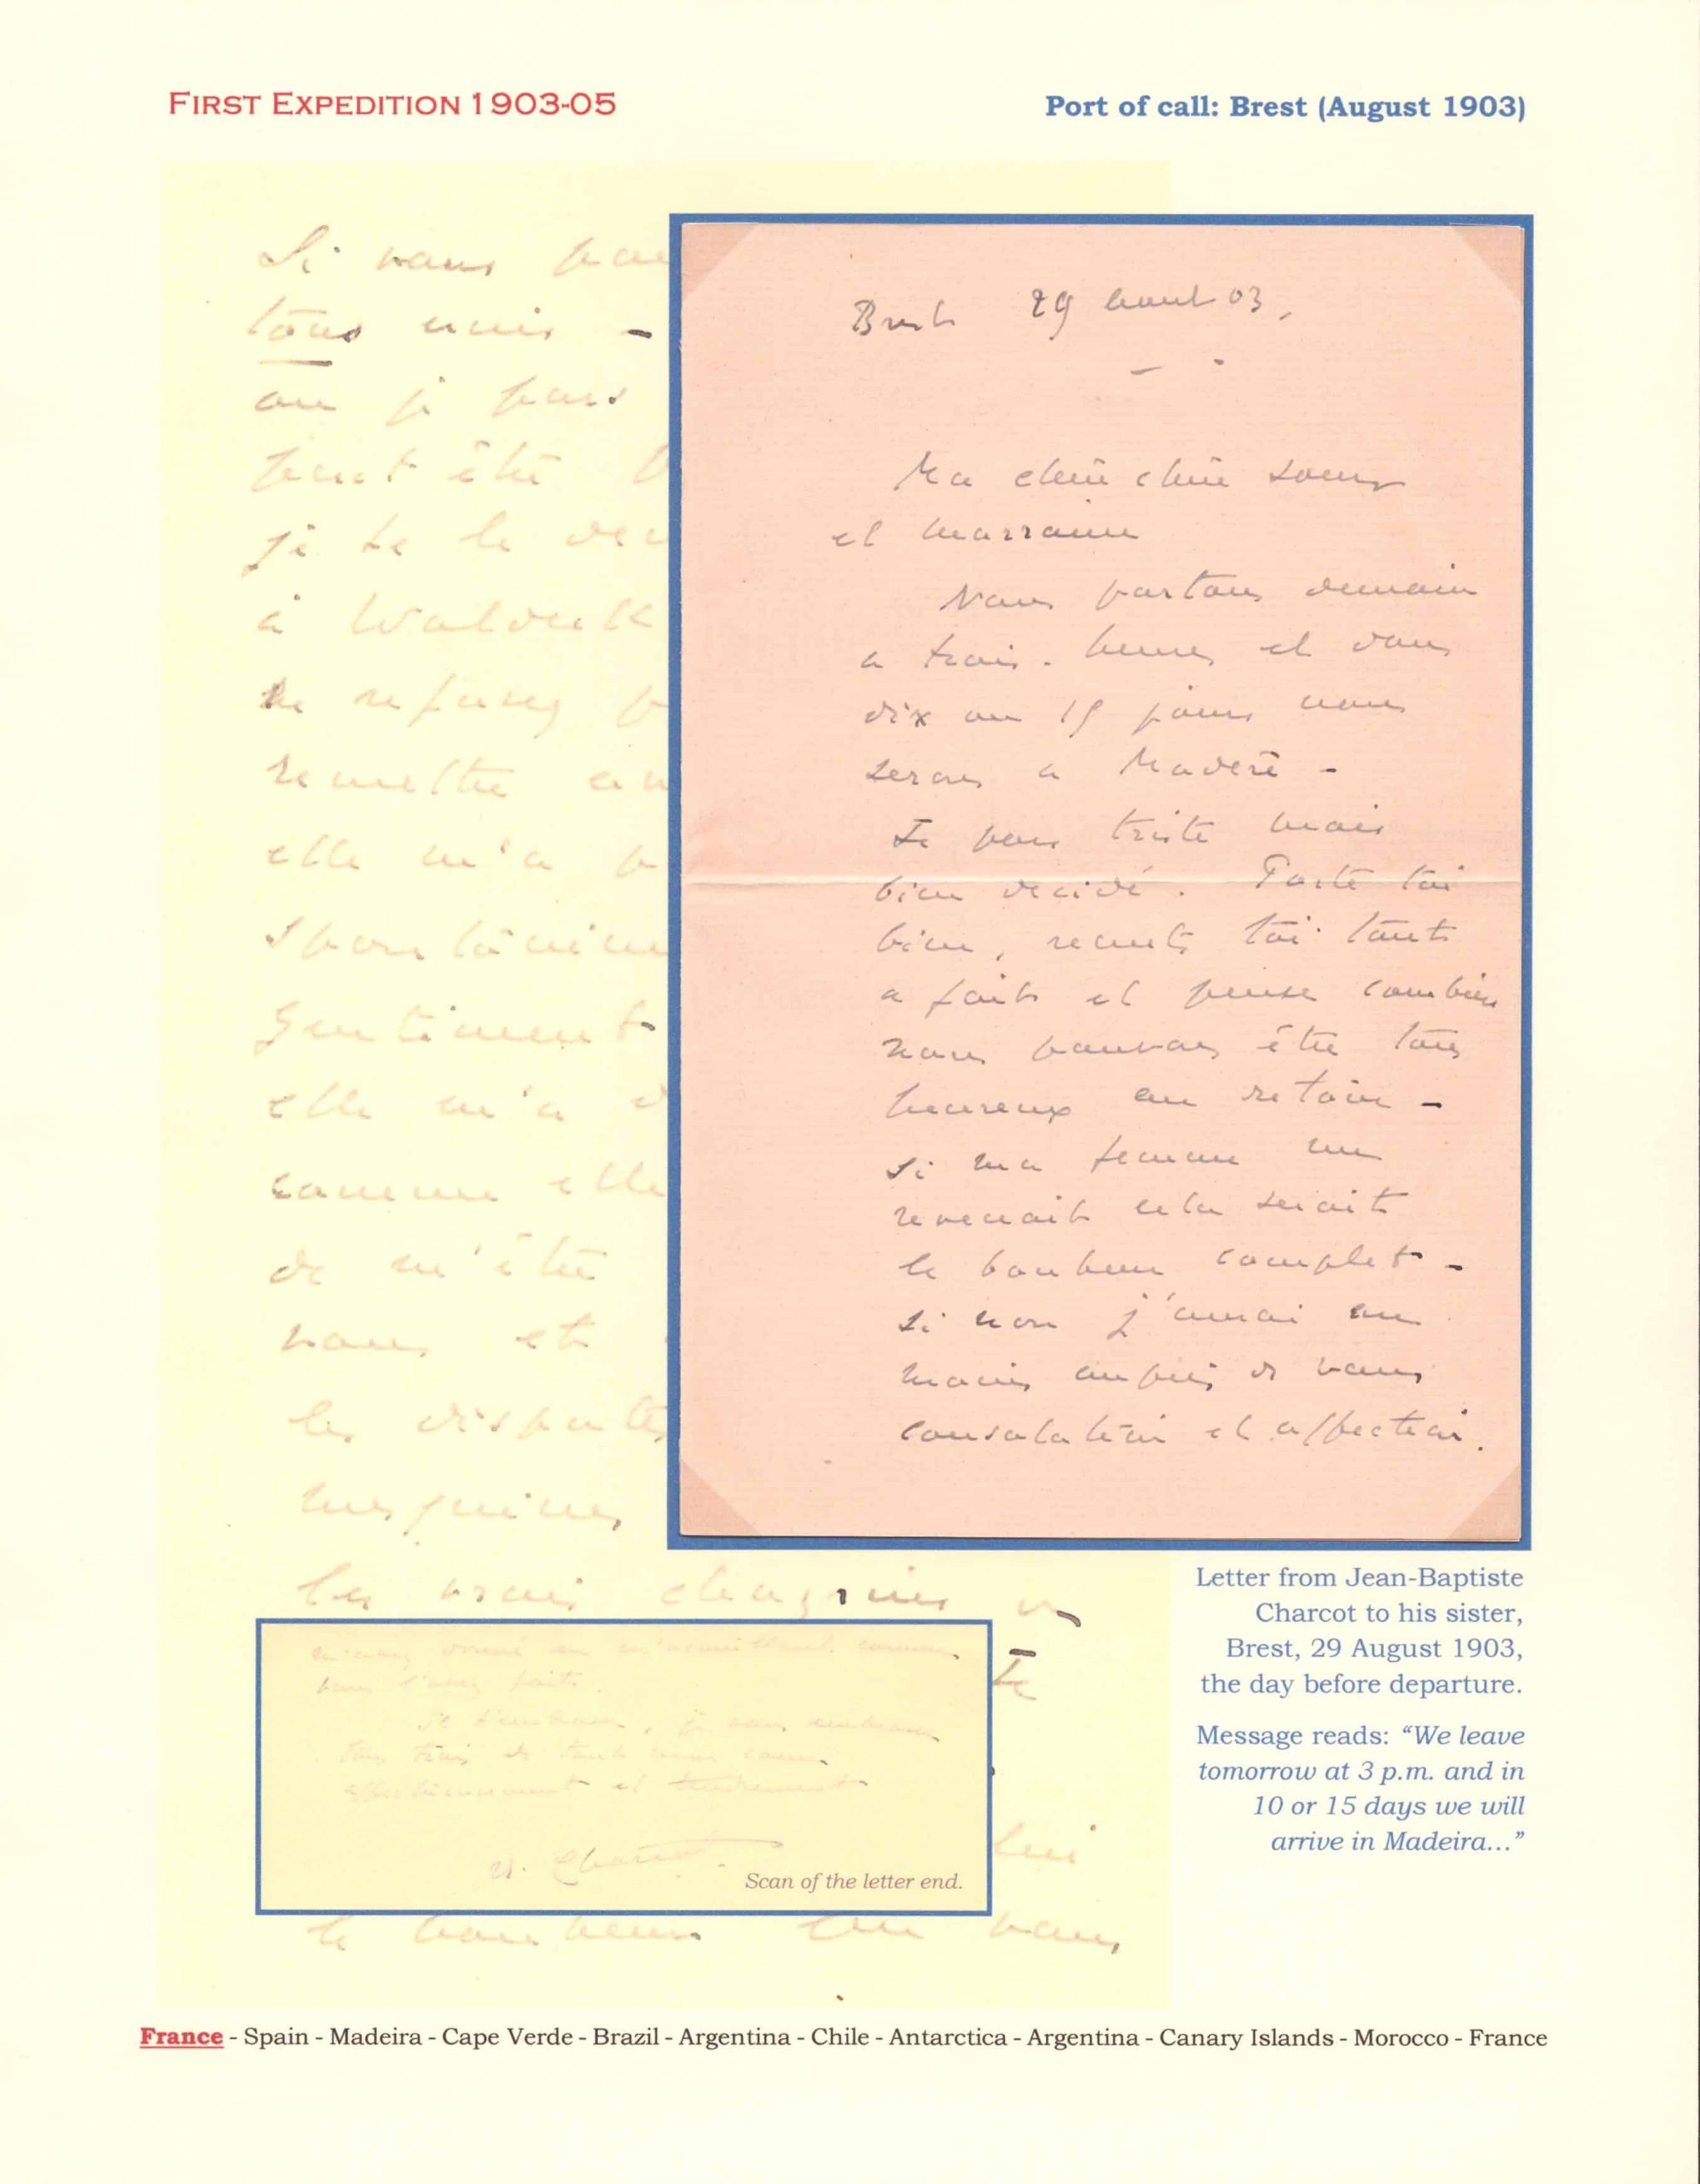 FIRST EXPEDITION 1903-05
Port of call: Brest (August 1903)
Si vous
tous unis -
ou je pars
peut être
je te le
à Waldeck
ne refusez
remettre
elle m'a
spontaném
gentiment
elle m'a
comme elle
de m'être
vous et
les disputes
mesquines
les vrais chagrins
Brest 29 Aout 03,
Ma chère chère soeur
et marraine
Nous partons demain
a trois heures et dans
dix ou 15 jours nous
serons a Madère -
Je pars triste mais
bien décidé. Porte toi
bien, remets toi tout
a fait et pense combien
nous pouvons être tous
heureux au retour -
Si ma femme me
revenait cela serait
le bonheur complet -
Si non j'aurai au
moins auprès de vous
consolation et affection.
m'avez donné en m'accueillant comme
vous l'avez fait.
Je t'embrasse, je vous embrasse
tous trois de tout mon coeur
affectueusement et tendrement
Charcot
Scan of the letter end.
lui
le bonheur que vous
Letter from Jean-Baptiste
Charcot to his sister,
Brest, 29 August 1903,
the day before departure.
Message reads: “We leave
tomorrow at 3 p.m. and in
10 or 15 days we will
arrive in Madeira...”
France - Spain - Madeira - Cape Verde - Brazil - Argentina - Chile - Antarctica - Argentina - Canary Islands - Morocco - France